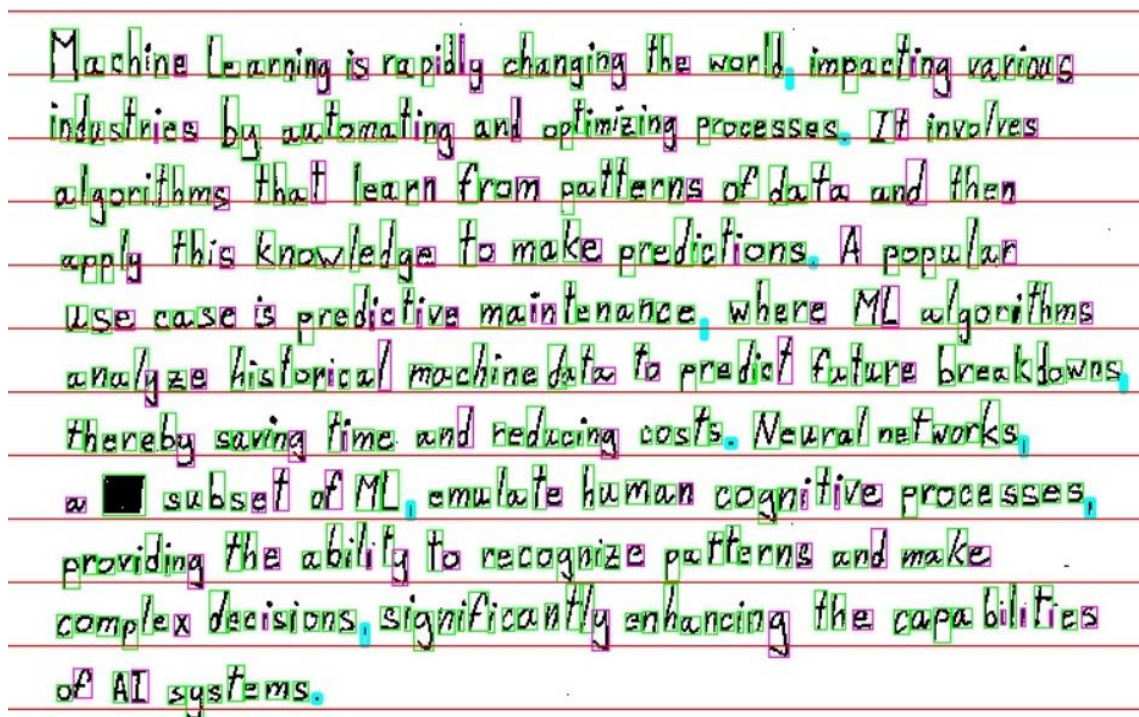 Machine Learning is rapidly changing the world, impacting various
industries by automating and optimizing processes. It involves
algorithms that learn from patterns of data and then
apply this knowledge to make predictions. A popular
use case is predictive maintenance, where ML algorithms
analyze historical machine data to predict future breakdowns,
thereby saving time and reducing costs. Neural networks,
a subset of ML, emulate human cognitive processes,
providing the ability to recognize patterns and make
complex decisions, significantly enhancing the capabilities
of AI systems.